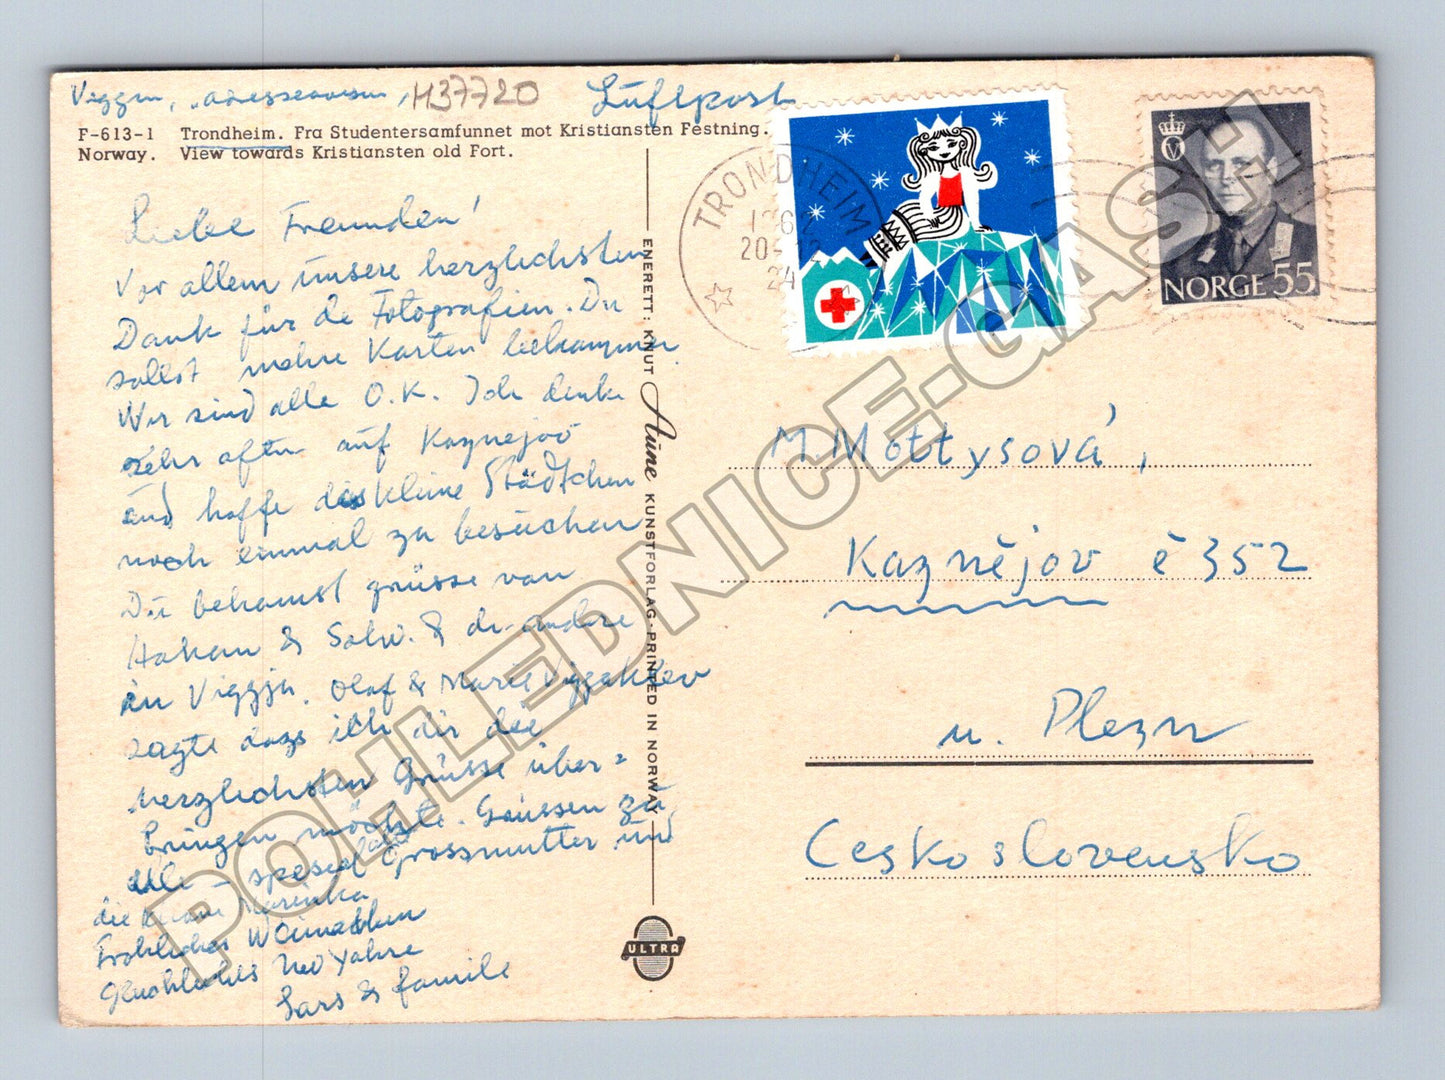 Viggja, adresseavisen, H37720
Luftpost
F-613-1 Trondheim. Fra Studentersamfunnet mot Kristiansten Festning.
Norway. View towards Kristiansten old Fort.
Liebe Freunden!
Vor allem unsere herzlichsten
Dank für die Fotografien. Du
sollst mehre Karten bekommen
Wir sind alle O.K. Ich denke
sehr often auf Kaznejov
und hoffe das kleine Städtchen
noch einmal zu besuchen
Du bekomst grüsse von
Hakan & Solv. & de andere
in Viggja. Olaf & Marie Viggaklev
sagte dass ich dir die
herzlichsten Grüsse über=
bringen möchte. Grüssen zu
alle - spesiel Grossmutter und
die kleine Marinka
Frohliches Weinachten
Gluckliches Neu Yahre
Lars & familie
ENERETT: KNUT Aune KUNSTFORLAG - PRINTED IN NORWAY
ULTRA
TRONDHEIM
1962
20-12
24
NORGE 55
M. Mottysová,
Kaznějov č 352
u. Plezn
Ceskoslovensko
POHLEDNICE-GASH